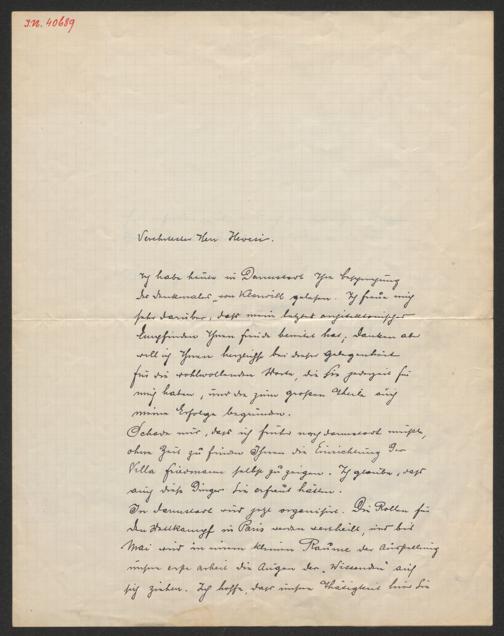 J.N. 40689
Verehrtester Herr Hevesi.
Ich habe heuer in Darmstadt Ihre Besprechung
des Denkmales von Klarwill gelesen. Ich freue mich
sehr darüber, dass mein letztes architektonisches
Empfinden Ihnen Freude bereitet hat; danken aber
will ich Ihnen herzlichst bei dieser Gelegenheit
für die wohlwollenden Worte, die Sie jederzeit für
mich haben, und die zum großen Theile auch
meine Erfolge begründen.
Schade nur, dass ich früher nach Darmstadt mußte,
ohne Zeit zu finden Ihnen die Einrichtung der
Villa Friedmann selbst zu zeigen. Ich glaube, dass
auch diese Dinge Sie erfreut hätten.
In Darmstadt wird jetzt organisirt. Die Rollen für
den Wettkampf in Paris werden vertheilt, und bei
Mai wird in einem kleinen Raume der Ausstellung
unsere erste Arbeit die Augen der „Wissenden" auf
sich ziehen. Ich hoffe, dass unsere Thätigkeit hier die